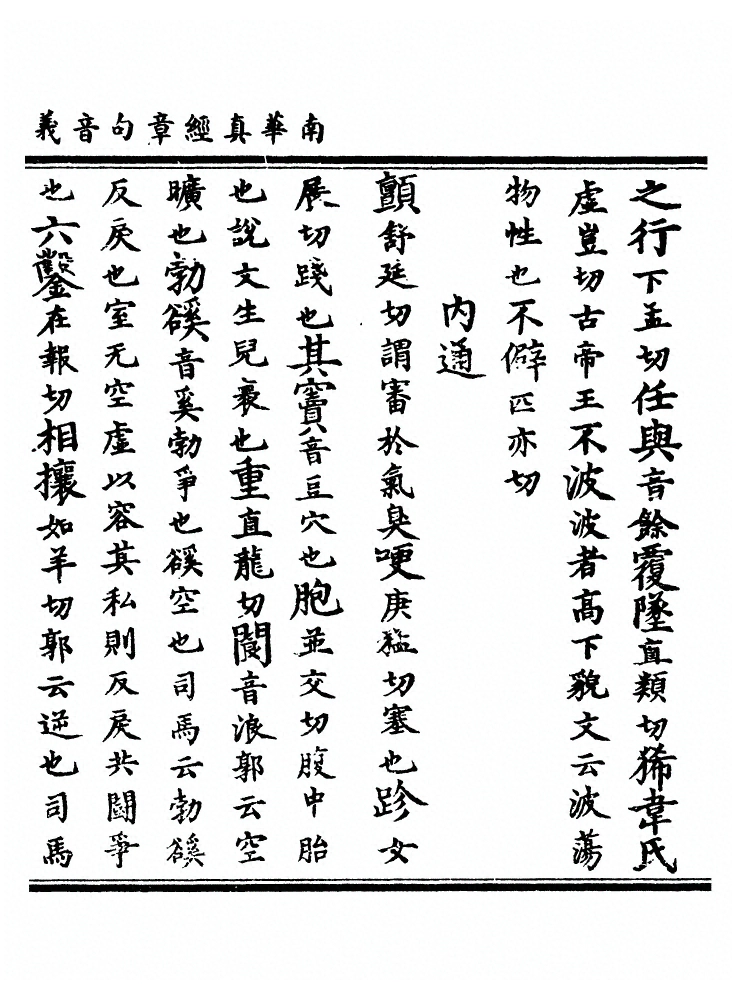 南華真經章句音義
之行下孟切任與音餘覆墜直類切狶韋氏
虛豈切古帝王不波波者高下貌文云波蕩
物性也不僻匹亦切
内通
顫舒延切謂審於氣臭哽庚猛切塞也跈女
展切踐也其竇音豆穴也胞並交切腹中胎
也說文生兒裹也重直龍切閬音浪郭云空
曠也勃豀音奚勃爭也豀空也司馬云勃豀
反戾也室无空虛以容其私則反戾共鬬爭
也六鑿在報切相攘如羊切郭云逆也司馬